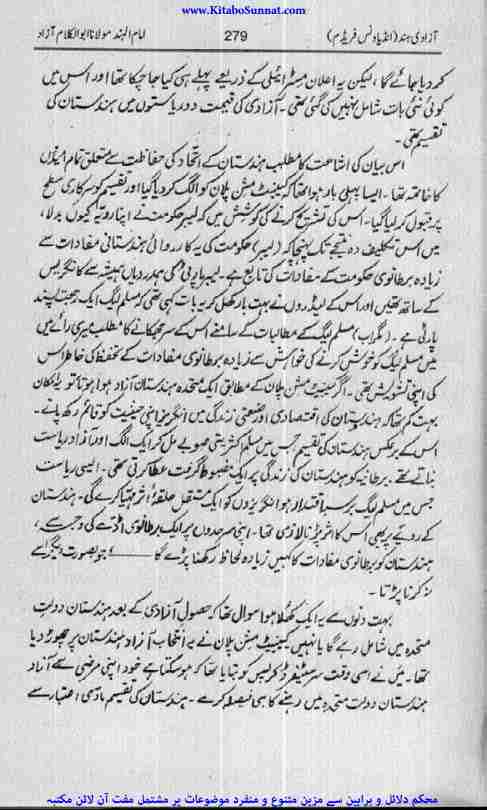 www.KitaboSunnat.com
آزادی ہند (انڈیا ونس فریڈم) 279 امام الہند مولانا ابوالکلام آزاد
کر دیا جائے گا، لیکن یہ اعلان مسٹر ایٹلی کے ذریعے پہلے ہی کیا جا چکا تھا اور اس میں
کوئی نئی بات شامل نہیں کی گئی تھی۔ آزادی کی قیمت دو ریاستوں میں ہندستان کی
تقسیم تھی۔
اس بیان کی اشاعت کا مطلب ہندستان کے اتحاد کی حفاظت سے متعلق تمام امیدوں
کا خاتمہ تھا۔ ایسا پہلی بار ہوا تھا کہ کیبنٹ مشن پلان کو الگ کر دیا گیا اور تقسیم کو سرکاری سطح
پر قبول کر لیا گیا۔ اس کی تشریح کرنے کی کوشش میں کہ لیبر حکومت نے اپنا رویہ کیوں بدلا،
میں اس تکلیف دہ نتیجے تک پہنچا کہ (لیبر) حکومت کی یہ کارروائی ہندستانی مفادات سے
زیادہ برطانوی حکومت کے مفادات کی تابع ہے۔ لیبر پارٹی کی ہمدردیاں ہمیشہ سے کانگریس
کے ساتھ تھیں اور اس کے لیڈروں نے بہت بار کھل کر یہ بات کہی تھی کہ مسلم لیگ ایک رجعت پسند
پارٹی ہے۔ (مگر اب) مسلم لیگ کے مطالبات کے سامنے اس کے سر جھکانے کا مطلب میری رائے میں
مسلم لیگ کو خوش کرنے کی خواہش سے زیادہ برطانوی مفادات کے تحفظ کی خاطر اس
کی اپنی تشویش تھی۔ اگر کیبنٹ مشن پلان کے مطابق ایک متحدہ ہندستان آزاد ہوا ہوتا تو یہ امکان
بہت کم تھا کہ ہندستان کی اقتصادی اور صنعتی زندگی میں انگریز اپنی حیثیت کو قائم رکھ پاتے۔
اس کے برعکس ہندستان کی تقسیم جس میں مسلم اکثریتی صوبے مل کر ایک الگ اور آزاد ریاست
بناتے تھے، برطانیہ کو ہندستان کی زندگی پر ایک مضبوط گرفت عطا کرتی تھی۔ ایسی ریاست
جس میں مسلم لیگ برسر اقتدار ہو انگریزوں کو ایک مستقل حلقۂ اثر مہیا کرے گی۔ ہندستان
کے رویے پر بھی اس کا اثر پڑنا لازمی تھا۔ اپنی سرحدوں پر ایک برطانوی اڈے کی وجہ سے،
ہندستان کو برطانوی مفادات کا کہیں زیادہ لحاظ رکھنا پڑے گا —— جو بصورت دیگر اسے
نہ کرنا پڑتا۔
بہت دنوں سے یہ ایک کھلا ہوا سوال تھا کہ حصول آزادی کے بعد ہندستان دولت
متحدہ میں شامل رہے گا یا نہیں کیبنٹ مشن پلان نے یہ انتخاب آزاد ہندستان پر چھوڑ دیا
تھا۔ میں نے اسی وقت سر سٹیفرڈ کرپس کو بتایا تھا کہ ہو سکتا ہے خود اپنی مرضی سے آزاد
ہندستان دولت متحدہ میں رہنے کا ہی فیصلہ کرے۔ ہندستان کی تقسیم مادی اعتبار سے
محکم دلائل و براہین سے مزین متنوع و منفرد موضوعات پر مشتمل مفت آن لائن مکتبہ